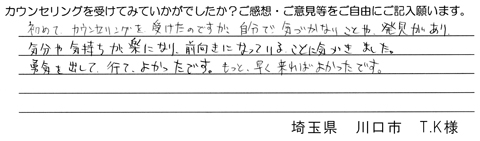 カウンセリングを受けてみていかがでしたか？ご感想・ご意見等をご自由にご記入願います。
初めて、カウンセリングを受けたのですが、自分で気づかないことや、発見があり、
気分や気持ちが楽になり、前向きになっていることに気づきました。
勇気を出して、行て、よかったです。もっと、早く来ればよかったです。
埼玉県　川口市　T.K様